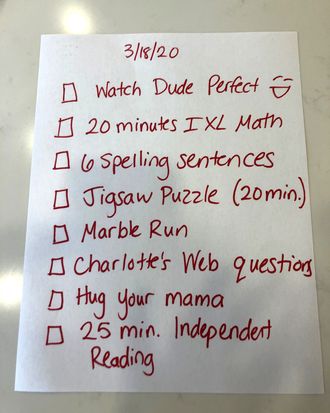 3/18/20
Watch Dude Perfect
20 minutes IXL Math
6 spelling sentences
Jigsaw Puzzle (20 min.)
Marble Run
Charlotte's Web questions
Hug your mama
25 min. Independent
Reading